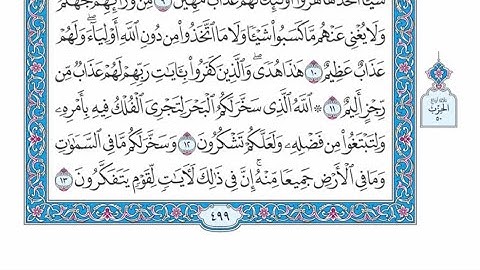 شَيْـًٔا ٱتَّخَذَهَا هُزُوًا أُو۟لَٰٓئِكَ لَهُمْ عَذَابٌ مُّهِينٌ ۝٩ مِّن وَرَآئِهِمْ جَهَنَّمُ
وَلَا يُغْنِى عَنْهُم مَّا كَسَبُوا۟ شَيْـًٔا وَلَا مَا ٱتَّخَذُوا۟ مِن دُونِ ٱللَّهِ أَوْلِيَآءَ ۖ وَلَهُمْ
عَذَابٌ عَظِيمٌ ۝١٠ هَٰذَا هُدًى ۖ وَٱلَّذِينَ كَفَرُوا۟ بِـَٔايَٰتِ رَبِّهِمْ لَهُمْ عَذَابٌ مِّن
رِّجْزٍ أَلِيمٌ ۝١١ ۞ ٱللَّهُ ٱلَّذِى سَخَّرَ لَكُمُ ٱلْبَحْرَ لِتَجْرِىَ ٱلْفُلْكُ فِيهِ بِأَمْرِهِۦ
وَلِتَبْتَغُوا۟ مِن فَضْلِهِۦ وَلَعَلَّكُمْ تَشْكُرُونَ ۝١٢ وَسَخَّرَ لَكُم مَّا فِى ٱلسَّمَٰوَٰتِ
وَمَا فِى ٱلْأَرْضِ جَمِيعًا مِّنْهُ ۚ إِنَّ فِى ذَٰلِكَ لَءَايَٰتٍ لِّقَوْمٍ يَتَفَكَّرُونَ ۝١٣
٤٩٩
الحزب
٥٠